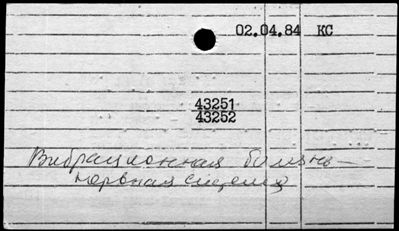 02.04.84 КС
43251
43252
Вибрационная болезнь —
нервная система